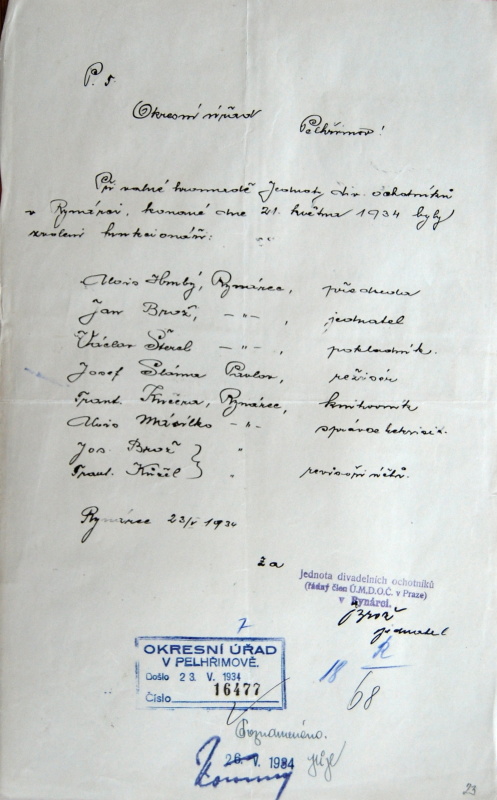 P. T.
Okresní úřad
Pelhřimov!
Při valné hromadě Jednoty div. ochotníků
v Rynárci, konané dne 21. května 1934 byli
zvoleni funkcionáři:
Alois Hrubý, Rynárec, předseda
Jan Brož, —"—, jednatel
Václav Štercl —"—, pokladník.
Josef Sláma Pavlov, režisér
Frant. Kučera, Rynárec, knihovník
Alois Másilko —"— správce
Jos. Brož } "
Frant. } " revisoři účtů.
Rynárec 23/V 1934
za
Jednota divadelních ochotníků
(řádný člen Ú.M.D.O.Č. v Praze)
v Rynárci.
J. Brož
jednatel
7
OKRESNÍ ÚŘAD
V PELHŘIMOVĚ.
Došlo 23. V. 1934
Číslo 16477
18
68
Poznamenáno.
26. V. 1934
23